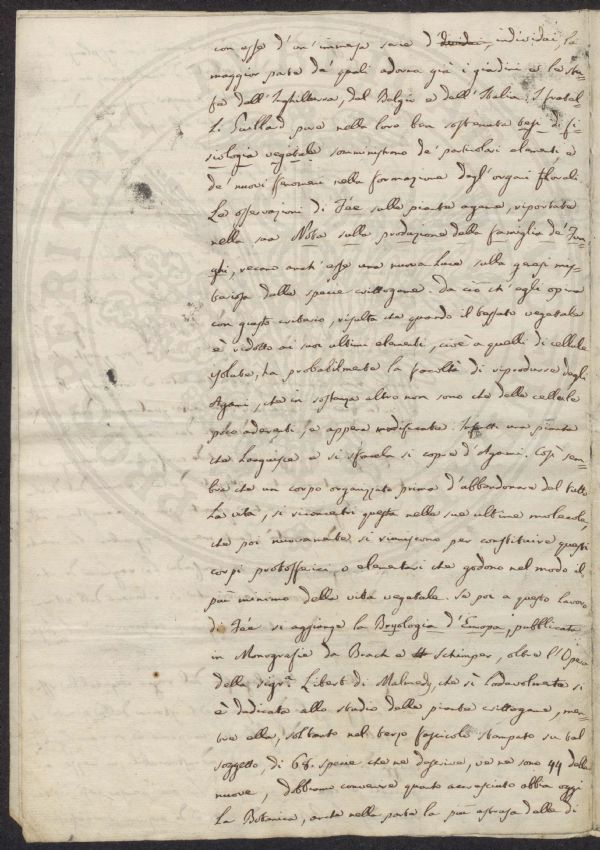 con esse d'un'immensa serie d' dividui, individui, la
maggior parte de' quali adorna già i giardini e le stu-
fe dell'Inghilterra, del Belgio e dell'Italia. I fratel-
li pure nella loro ben sostenuta tesi di fi-
siologia vegetale somministrano de' particolari elementi, e
de' nuovi fenomeni nella formazione degl'organi florali.
Le osservazioni di Fée sulle piante agame, riportate
nella sua Nota sulla produzione della famiglia de' Fun-
ghi, recano anch'esse una nuova luce sulla genesi mis-
teriosa delle specie crittogame. Da ciò ch'egli opina
con questo criterio, risulta che quando il tessuto vegetale
è ridotto ai suoi ultimi elementi, cioè a quelli di cellule
isolate, ha probabilmente la facoltà di riprodurre degli
Agami, che in sostanza altro non sono che delle cellule
poco aderenti, e appena modificate. Infatti una pianta
che languisce e si sfacela si copre d'Agami. Così sem-
bra che un corpo organizzato prima d'abbandonare del tutto
la vita, si riconcentri questa nelle sue ultime molecole,
che poi nuovamente si riuniscono per constituire questi
corpi protofferici, o elementari che godono nel modo il
più minimo della vita vegetale. Se poi a questo lavoro
di Fée si aggiunge la Bryologia d'Europa, pubblicata
in Monografie da Bruch e Schimper, oltre l'Opera
della sigr.ª Libert di Malmedy, che sì lodevolmente si
è dedicata allo studio delle piante crittogame, men-
tre ella, soltanto nel terzo fascicolo stampato su tal
soggetto, di 68. specie che ne descrive, ve ne sono 44 delle
nuove, dobbiamo convenire quanto accresciuto abbia oggi
la Botanica, anche nella parte la più astrusa delle di